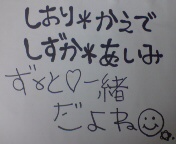 しおり*かえで
しずか*あいみ
ずっと♡一緒
だよね☺